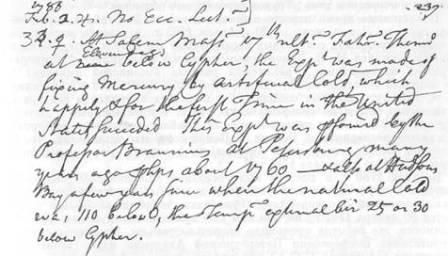 1788
Feb. 2. No Ecc. Lect.
237
At Salem Mass. 17th ult.
at below Cypher, the Expt. was made of
fixing Mercury by Artificial Cold which
happily & for the first Time in the United
States succeeded This Expt. was pformed by the
Professor Braunius at Petersburg many
years ago phps about 1760 — & also at Hudsons
Bay a few years since when the natural Cold
was, 110 below 0, the Temp external air 25 or 30
below Cypher.